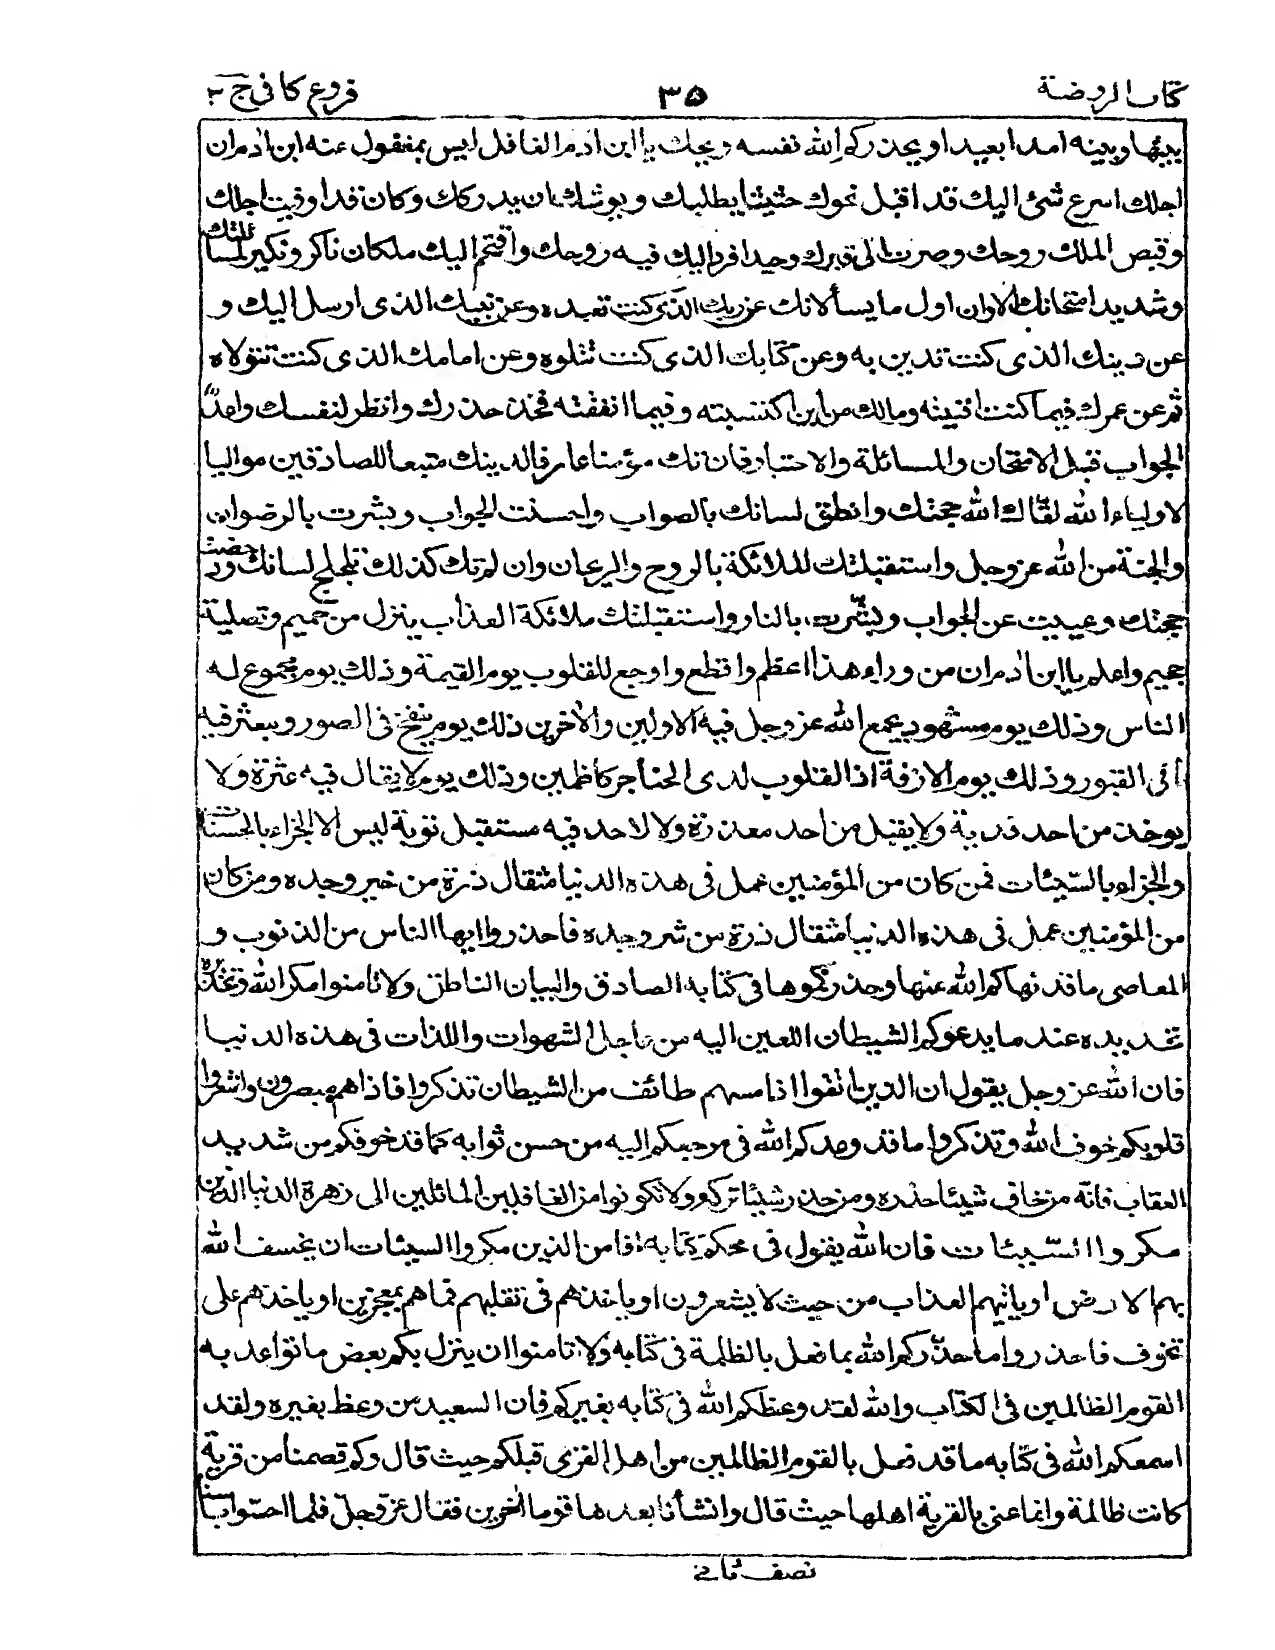 كتاب الروضة ٣٥ فروع كافي ج ٣
بينها وبينه امدا بعيدا ويحذركم الله نفسه ويحك يا ابن ادم الغافل ليس بمغفول عنه ابن ادم ان
اجلك اسرع شئ اليك قد اقبل نحوك حثيثا يطلبك ويوشك ان يدركك وكان قد اوفيت اجلك
وقبض الملك روحك وصرت الى قبرك وحيدا فرد اليك فيه روحك واقتحم اليك ملكان ناكر ونكير لمسائلتك
وشديد امتحانك الا وان اول ما يسألانك عن ربك الذي كنت تعبده وعن نبيك الذي ارسل اليك و
عن دينك الذي كنت تدين به وعن كتابك الذي كنت تتلوه وعن امامك الذي كنت تتولاه
ثم عن عمرك فيما كنت افنيته ومالك من اين اكتسبته وفيما انفقته فخذ حذرك وانظر لنفسك واعد
الجواب قبل الامتحان والمسائلة والاختبار فان تك مؤمنا عارفا لدينك متبعا للصادقين مواليا
لاولياء الله لقاك الله حجتك وانطق لسانك بالصواب واحسنت الجواب وبشرت بالرضوان
والجنة من الله عز وجل واستقبلتك الملائكة بالروح والريحان وان لم تك كذلك تلجلج لسانك ودحضت
حجتك وعييت عن الجواب وبشرت بالنار واستقبلتك ملائكة العذاب بنزل من حميم وتصلية
جحيم واعلم يا ابن ادم ان من وراء هذا اعظم وافظع واوجع للقلوب يوم القيمة وذلك يوم مجموع له
الناس وذلك يوم مشهود يجمع الله عز وجل فيه الاولين والاخرين ذلك يوم ينفخ في الصور وبعثر فيه
افي القبور وذلك يوم الازفة اذ القلوب لدى الحناجر كاظمين وذلك يوم لا يقال فيه عثرة ولا
يوخذ من احد فدية ولا يقبل من احد معذرة ولا لاحد فيه مستقبل توبة ليس الا الجزاء بالحسنات
والجزاء بالسيئات فمن كان من المؤمنين عمل في هذه الدنيا مثقال ذرة من خير وجده ومن كان
من المؤمنين عمل في هذه الدنيا مثقال ذرة من شر وجده فاحذروا ايها الناس من الذنوب و
المعاصي ما قد نهاكم الله عنها وحذركموها في كتابه الصادق والبيان الناطق ولا تامنوا مكر الله وتحذيره
تحديده عند ما يدعوكم الشيطان اللعين اليه من عاجل الشهوات واللذات في هذه الدنيا
فان الله عز وجل يقول ان الذين اتقوا اذا مسهم طائف من الشيطان تذكروا فاذا هم مبصرون واشعروا
قلوبكم خوف الله وتذكروا ما قد وعدكم الله في مرجعكم اليه من حسن ثوابه كما قد خوفكم من شديد
العقاب فانه من خاف شيئا حذره ومن حذر شيئا تركه ولا تكونوا من الغافلين المائلين الى زهرة الدنيا الذين
مكروا السيئات فان الله يقول في محكم كتابه افامن الذين مكروا السيئات ان يخسف الله
بهم الارض او ياتيهم العذاب من حيث لا يشعرون او ياخذهم في تقلبهم فما هم بمعجزين او ياخذهم على
تخوف فاحذروا ما حذركم الله بما فعل بالظلمة في كتابه ولا تامنوا ان ينزل بكم بعض ما تواعد به
القوم الظالمين في الكتاب والله لقد وعظكم الله في كتابه بغيركم فان السعيد من وعظ بغيره ولقد
اسمعكم الله في كتابه ما قد فعل بالقوم الظالمين من اهل القرى قبلكم حيث قال وكم قصمنا من قرية
كانت ظالمة وانما عنى بالقرية اهلها حيث قال وانشأنا بعدها قوما اخرين فقال عز وجل فلما احسوا باسنا
نصف ثاني